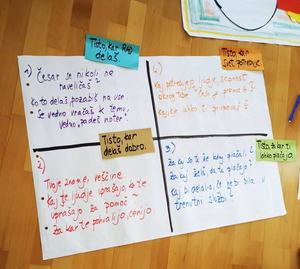 Tisto, kar RAD
delaš.
1) Česar se nikoli ne
naveličaš?
Ko to delaš pozabiš na vse.
Se vedno vračaš k temu,
vedno "zadeš noter".
Tisto, kar
svet potrebuje.
4)
Kaj potrebujejo ljudje, skupnost
okrog tebe?
Kaj je lahko prispevaš?
Tisto, kar
delaš dobro.
2)
Tvoje znanje, veščine.
Kaj te ljudje vprašajo, ko te
vprašajo za pomoč
za kar te pohvalijo, cenijo.
Tisto, za kar si
lahko plačan
3)
Zakaj so te že kdaj plačali?
Zakaj želiš, da te plačajo?
Kaj bi delala, če ne bi bila v
trenutni službi?